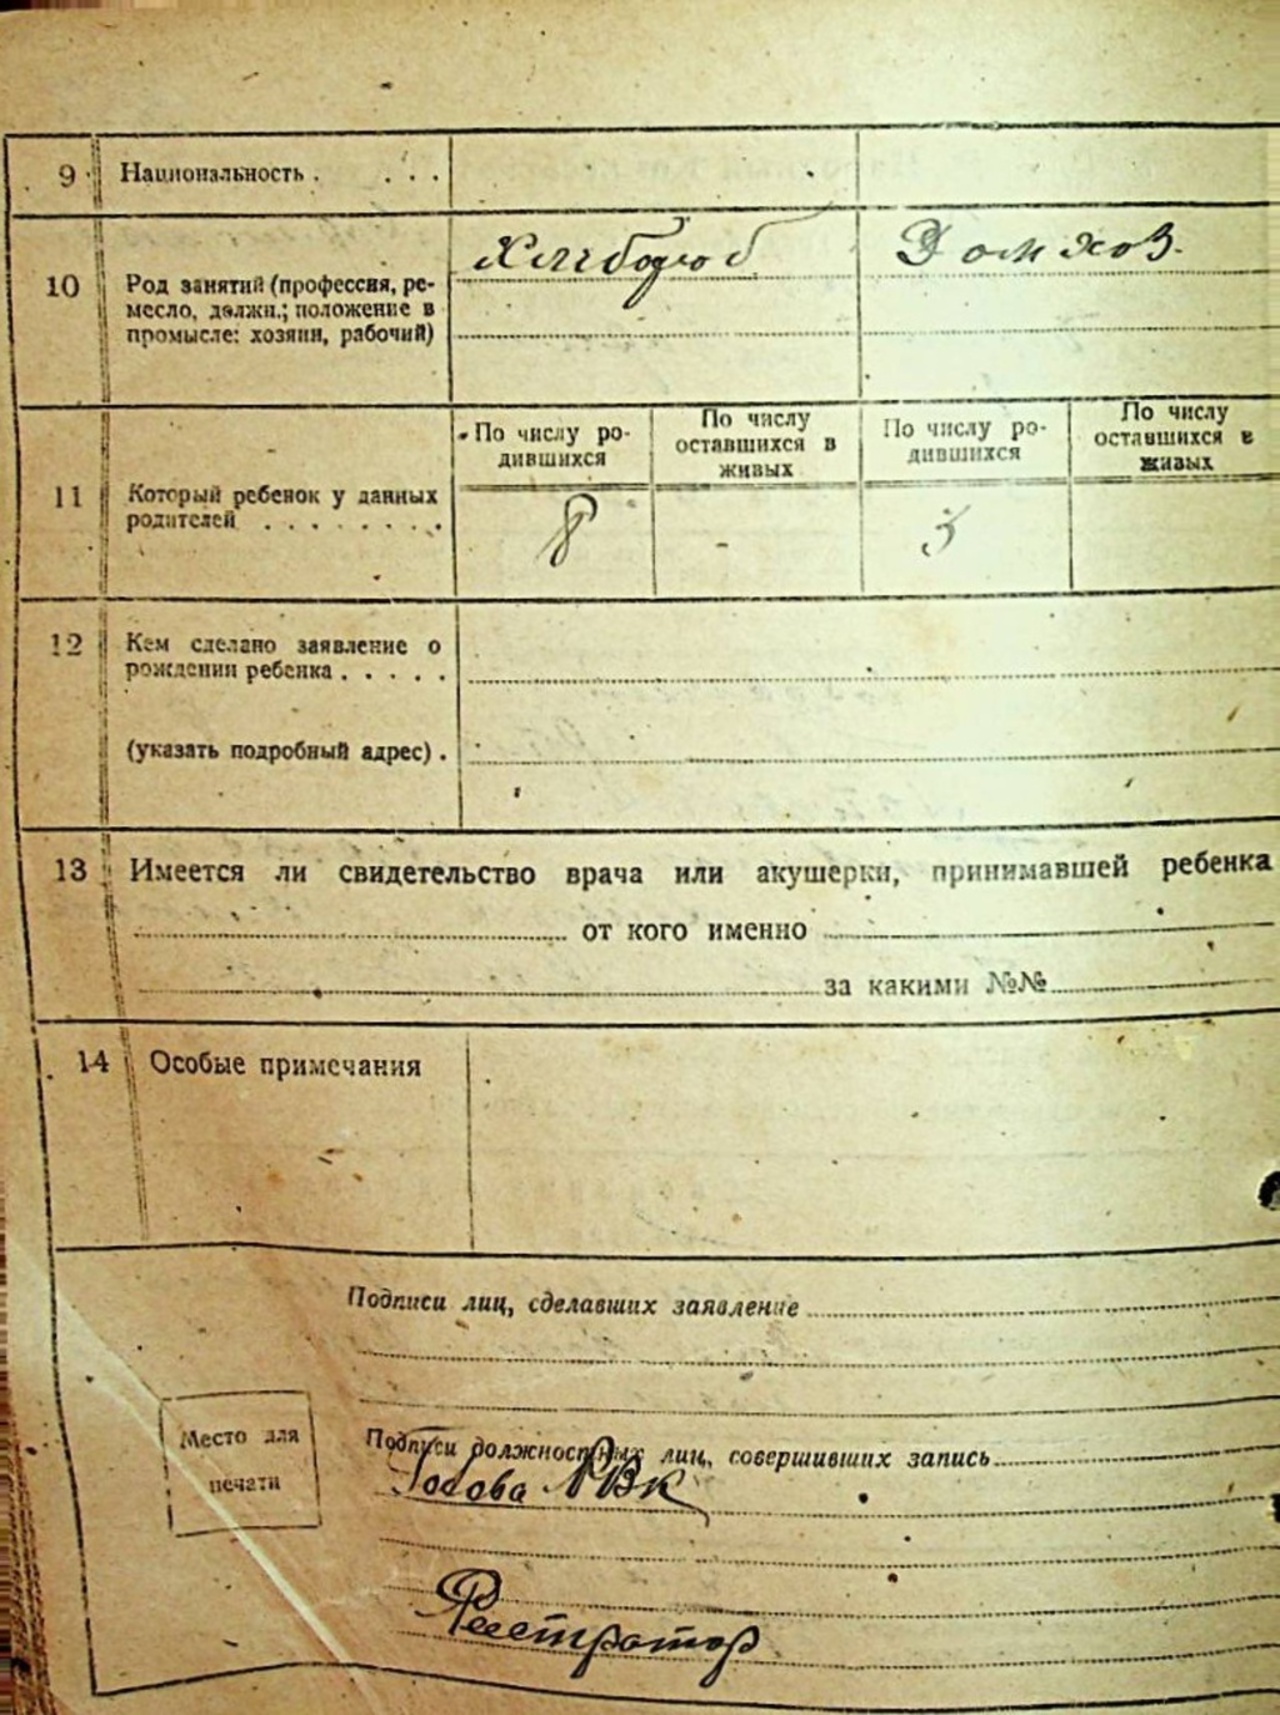 9 Национальность . . . .
Хлібороб Домхоз.
10 Род занятий (профессия, ре-
месло, должн.; положение в
промысле: хозяин, рабочий)
По числу ро-
дившихся
По числу
оставшихся в
живых
По числу ро-
дившихся
По числу
оставшихся в
живых
11 Который ребенок у данных
родителей . . . . . . . .
8 - 5
12 Кем сделано заявление о
рождении ребенка . . . . .
(указать подробный адрес) .
13 Имеется ли свидетельство врача или акушерки, принимавшей ребенка
от кого именно
за какими №№
14 Особые примечания
Подписи лиц, сделавших заявление
Место для
печати
Подписи должностных лиц, совершивших запись
Голова РВК
Реєстратор